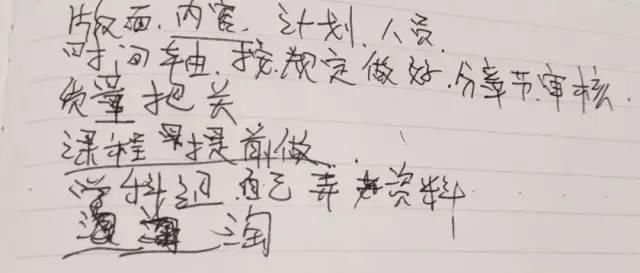 版面、内容、计划、人员、
时间轴、按规定做好、分章节、审核、
质量把关
课程提前做、
学科组、自己弄资料
淘